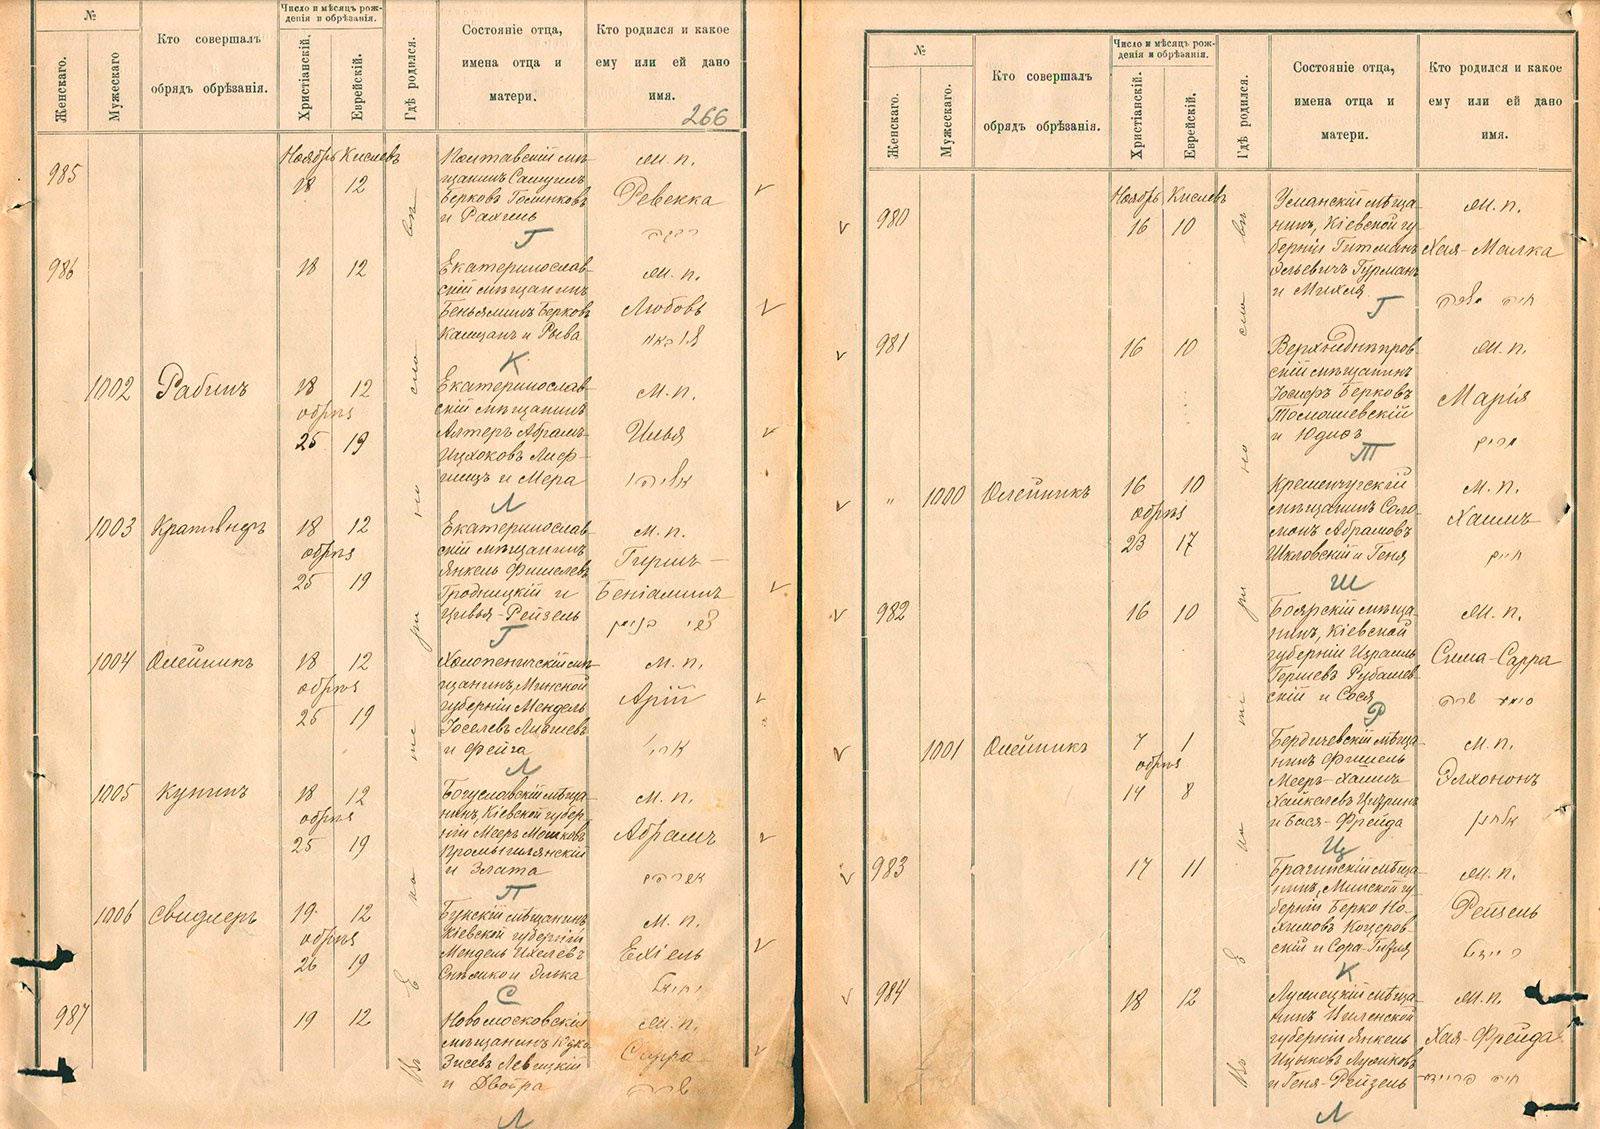 №
Женскаго.
Мужескаго
Кто совершалъ
обрядъ обрѣзанія.
Число и мѣсяцъ рож-
денія и обрѣзанія.
Христіанскій.
Еврейскій.
Гдѣ родился.
Состояніе отца,
имена отца и
матери.
Кто родился и какое
ему или ей дано
имя.
266
985
Ноябрь Кислевъ
18 12
Полтавскій мѣ-
щанинъ Самуилъ
Берковъ
и Рахиль
Г
Ж. п.
Ревекка
רבקה
986
18 12
Екатеринослав-
скій мѣщанинъ
Беньяминъ Берковъ
Капцанъ и Рыва
К
Ж. п.
Любовь
1002
Рабинъ
18 12
обрѣз
25 19
Екатеринослав-
скій мѣщанинъ
Алтеръ Абрамъ-
Ицхоковъ Лиф-
шицъ и Мера
Л
М. п.
Илья
אליהו
1003
18 12
обрѣз
25 19
Екатеринослав-
скій мѣщанинъ
Янкель Фишелевъ
Гродницкій и
Цивья-Рейзель
Г
М. п.
Гиршъ-
Беніаминъ
צבי בנימין
1004
Олейникъ
18 12
обрѣз
25 19
Холопеничскій мѣ-
щанинъ, Минской
губерніи Мендель
Іоселевъ
и Фейга
Л
М. п.
Арій
ארי
1005
Купинъ
18 12
обрѣз
25 19
Богуславскій мѣща-
нинъ, Кіевской губер-
ніи Мееръ Мошковъ
и Злата
П
М. п.
Абрамъ
אברהם
1006
Свидлеръ
19 12
обрѣз
26 19
Букскій мѣщанинъ
Кіевской губерніи
Мендель Ихелевъ
и Элька
С
М. п.
Ехіель
יחיאל
987
19 12
Новомосковскій
мѣщанинъ
Зисевъ Левицкій
и Двойра
Л
Ж. п.
Сарра
שרה
Въ Екатеринославѣ
№
Женскаго.
Мужескаго.
Кто совершалъ
обрядъ обрѣзанія.
Число и мѣсяцъ рож-
денія и обрѣзанія.
Христіанскій.
Еврейскій.
Гдѣ родился.
Состояніе отца,
имена отца и
матери.
Кто родился и какое
ему или ей дано
имя.
980
Ноябрь Кислевъ
16 10
Уманскій мѣща-
нинъ, Кіевской гу-
берніи Гитманъ
Гурманъ
и Михля
Г
Ж. п.
Хая-Малка
חיה מלכה
981
16 10
Верхнеднѣпров-
скій мѣщанинъ
Іосифъ Берковъ
Томашевскій
и Юдисъ
Т
Ж. п.
Марія
מרים
" 1000
Олейникъ
16 10
обрѣз
23 17
Кременчугскій
мѣщанинъ Соло-
монъ Абрамовъ
Шкловскій и Геня
Ш
М. п.
Хаимъ
חיים
982
16 10
Боярскій мѣща-
нинъ, Кіевской
губерніи Израиль
Гершевъ Рубашев-
скій и Сося
Р
Ж. п.
Сима-Сарра
סימא שרה
1001
Олейникъ
7 1
обрѣз
14 8
Бердичевскій мѣща-
нинъ Фишель
Мееръ-Хаимъ
Хайкелевъ Цитринъ
и Бася-Фрейда
Ц
М. п.
Элхононъ
אלחנן
983
17 11
Брагинскій мѣща-
нинъ, Минской гу-
берніи Берко Но-
химовъ Коцеров-
скій и Сора-Гитля
К
Ж. п.
Рейзель
רייזל
984
18 12
мѣща-
нинъ Виленской
губерніи Янкель
Ицыковъ
и Геня-Рейзель
Л
Ж. п.
Хая-Фрейда
חיה פריידא
Въ Екатеринославѣ